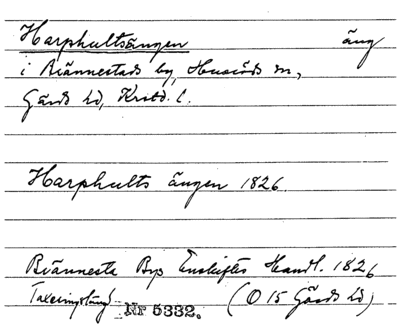 Harphultsängen äng
i Brännestads by, Huaröds sn,
Gärds hd, Kristd. l.
Harphults ängen 1826.
Brännesta Bys Enskiftes Handl. 1826
Nr 5332. (O 15 Gärds hd)